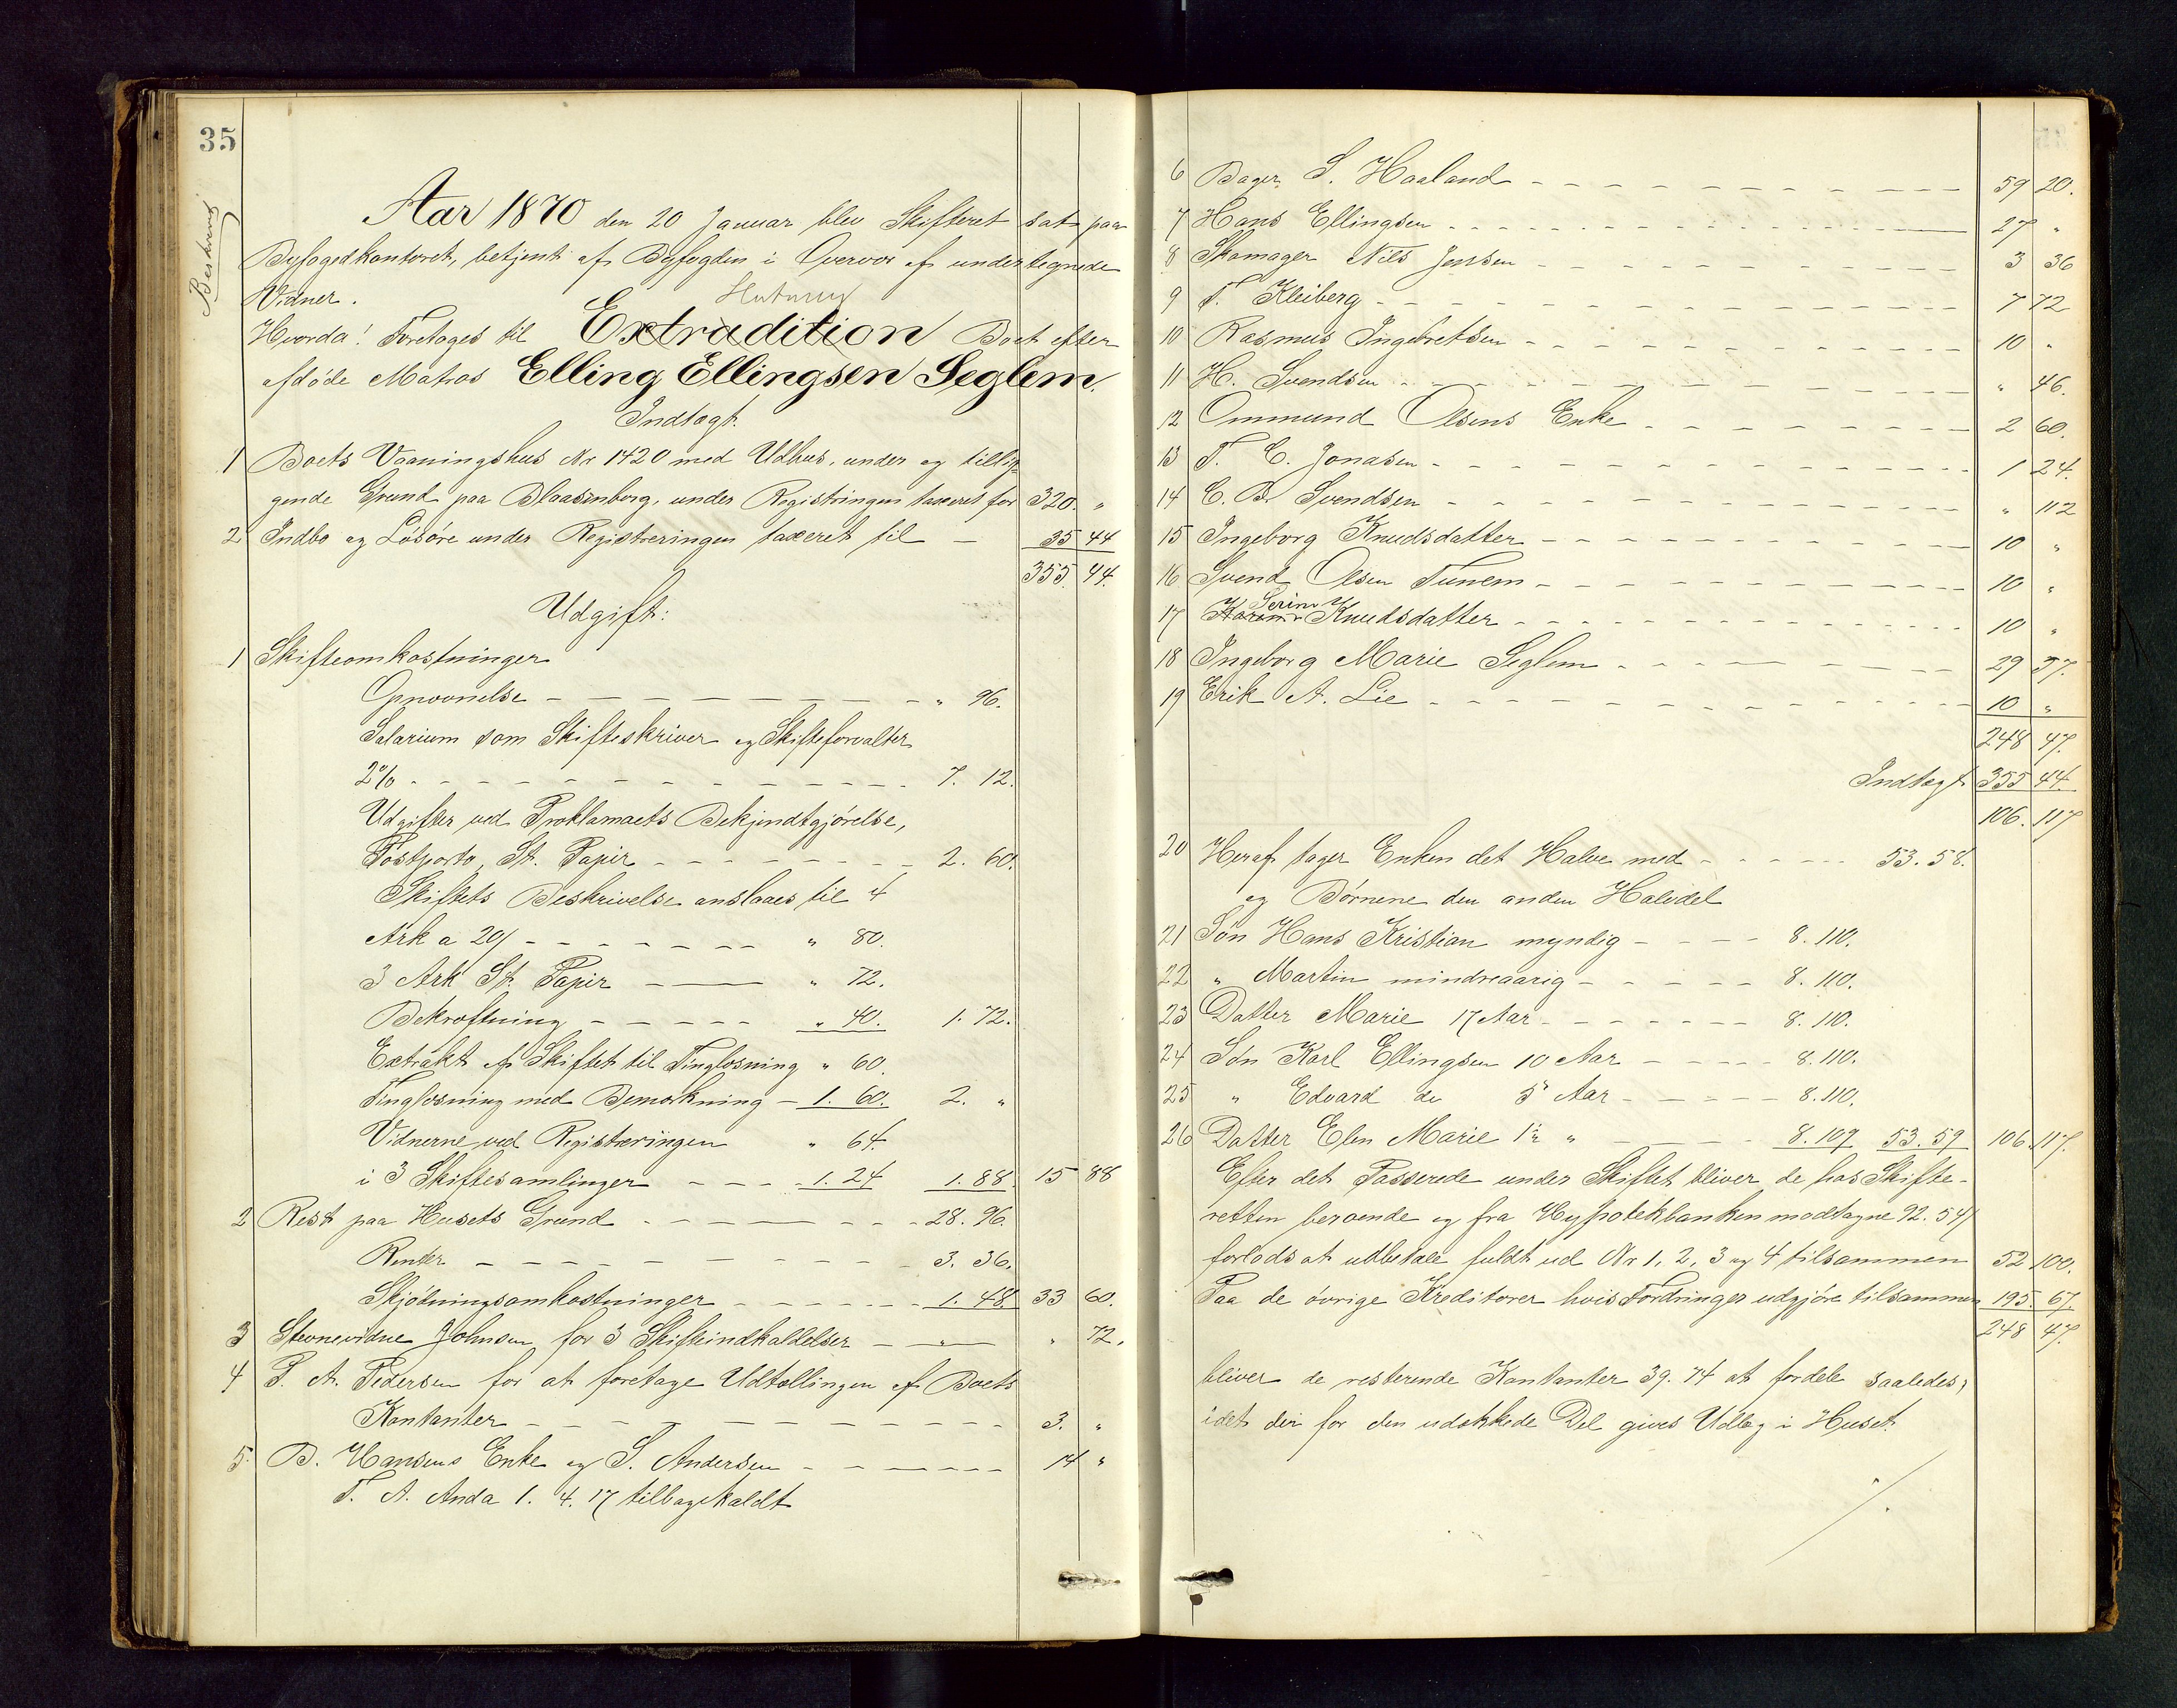 35
Beskrevet
Aar 1870 den 20 Januar blev Skifteret sat paa
Byfogedkontoret, betjent af Byfogden i Overvær af undertegnede
Vidner.
Hvorda! Foretoges til Extradition Boet efter
afdøde Matros Elling Ellingsen Seglem.
Indtægt.
1 Boets Vaaningshus Nr 1420 med Udhus, under og tillig-
gende Grund paa Blaasenborg, under Registringen taxeret for 320. "
2 Indbo og Løsøre under Registreringen taxeret til — 35 44
355. 44.
Udgift:
1 Skifteomkostninger
Opnævnelse — " 96.
Salarium som Skifteskriver og Skifteforvalter
2% - 7. 12.
Udgifter ved Proklamaets Bekjendtgjørelse,
Postporto, St. Papir - 2. 60.
Skiftets Beskrivelse anslaaes til 4
Ark a 20/ - " 80.
3 Ark St. Papir — " 72.
Bekræftning - " 40. 1. 72.
Extrakt af Skiftet til Tinglæsning " 60.
Tinglæsning med Bemærkning - 1. 60. 2. "
Vidnerne ved Registreringen " 64.
i 3 Skiftesamlinger - 1. 24 1. 88. 15 88
2 Rest paa Husets Grund - 28. 96.
Renter - 3. 36.
Skjødningsomkostninger - 1. 48. 33 60.
3 Stevnevidne Johnsen for 3 Skifteindkaldelser — " 72.
4 P. A. Pedersen for at foretage Udtællingen af Boets
Kontanter - 3. "
5. B. Hansens Enke og S. Andersen - 14 "
T. A. Anda 1. 4. 17 tilbagekaldt
6 Bager S. Haaland - 59 20.
7 Hans Ellingsen - 27 "
8 Skomager Nils Jensen - 3 36
9 T. Kleiberg - 7 72
10 Rasmus Ingebretsen - 10 "
11 H. Svendsen - " 46.
12 Ommund Olsens Enke - 2 60.
13 T. C. Jonasen - 1 24.
14 C. B. Svendsen - " 112
15 Ingeborg Knudsdatter - 10 "
16 Svend Olsen Tunem - 10 "
Serine
17 Knudsdatter - 10 "
18 Ingeborg Marie Seglem - 29 37.
19 Erik A. Lie - 10 "
248 47.
Indtægt 355 44.
106. 117
20 Heraf tager Enken det Halve med - 53. 58.
og Børnene den anden Halvdel
21 Søn Hans Kristian myndig - 8. 110.
22 " Martin mindreaarig - 8. 110.
23 Datter Marie 17 Aar - 8. 110.
24 Søn Karl Ellingsen 10 Aar - 8. 110.
25 " Edvard do 5 Aar - 8. 110.
26 Datter Elen Marie 1½ " - 8. 109 53. 59 106. 117.
Efter det Passerede under Skiftet bliver de hos Skifte-
retten beroende og fra Hypotekbanken modtagne 92. 54/
forlods at udbetale fuldt ud Nr 1, 2, 3 og 4 tilsammen 52 100.
Paa de øvrige Kreditorer hvis Fordringer udgjøre tilsammen 195. 67.
248 47.
bliver de resterende Kontanter 39. 74 at fordele saaledes,
idet der for den udækkede Del gives Udlæg i Huset.